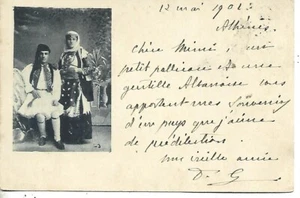 12 mai 1902
Athènes
Chère Mimi, un
petit pallicare et une
gentille Albanaise vous
apportent mes souvenirs
d'un pays que j'aime
de prédilection
une vieille amie
D. G